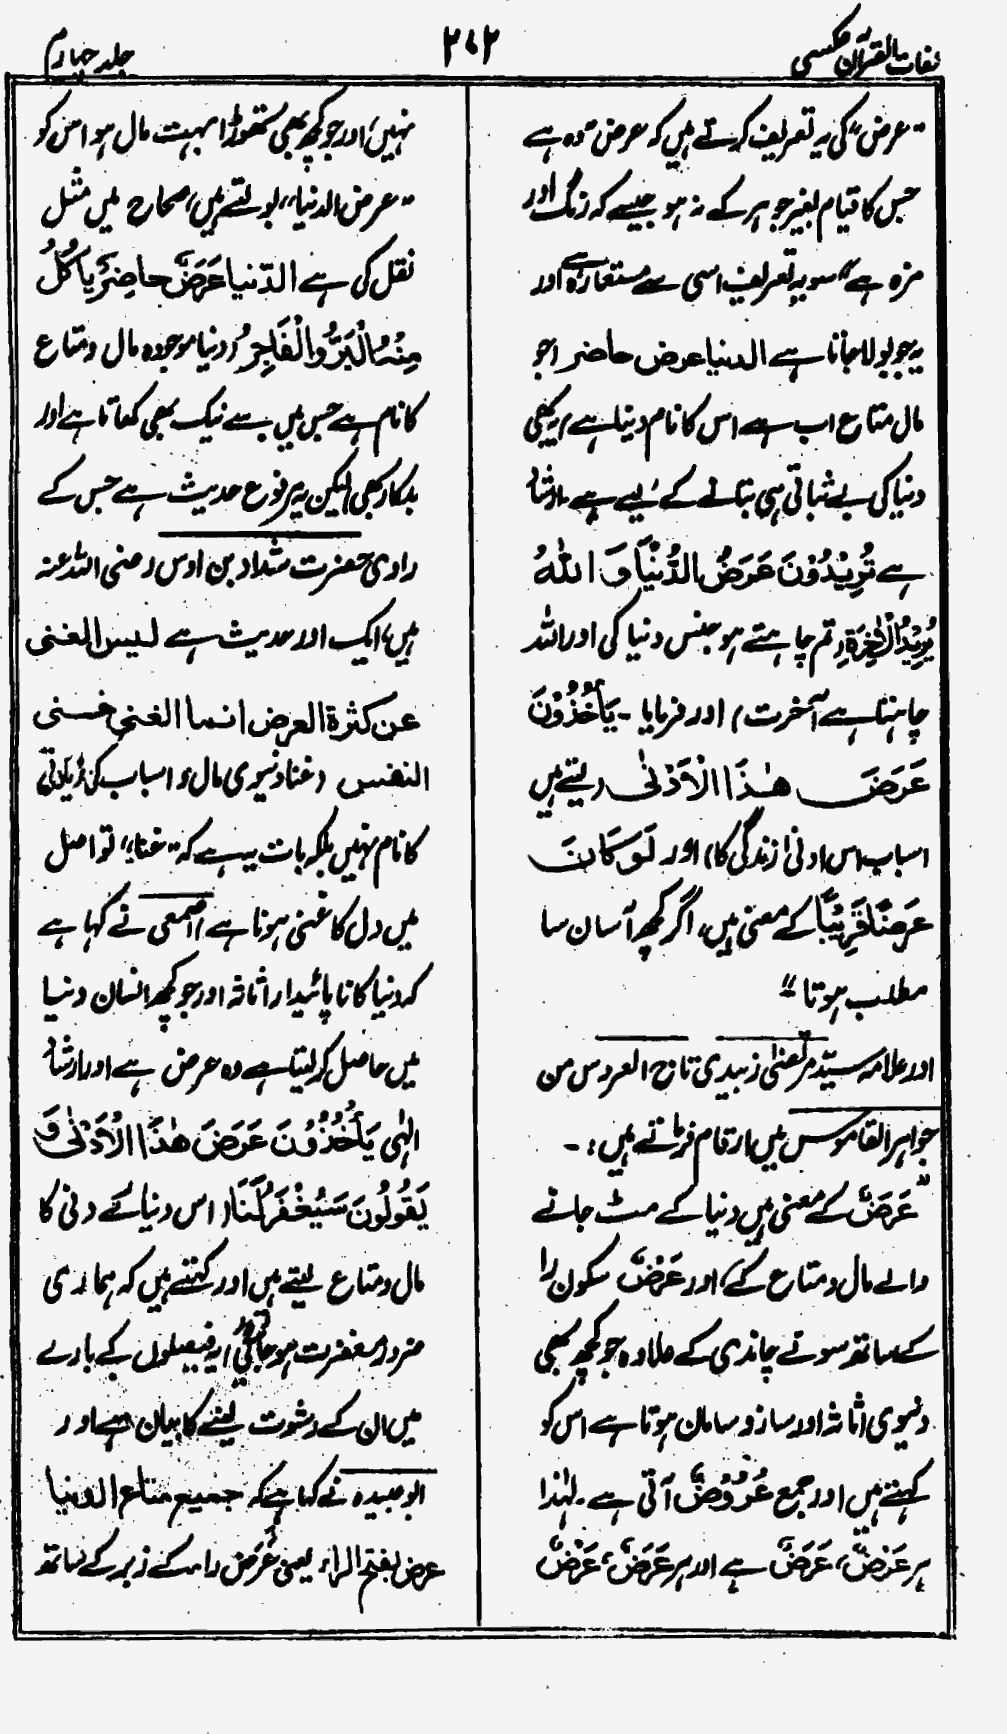 لغات القرآن عکسی
۲۷۲
جلد چہارم
"عرض" کی یہ تعریف کرتے ہیں کہ عرض وہ ہے
جس کا قیام بغیر جوہر کے نہ ہو جیسے کہ رنگ اور
مزہ ہے" سو یہ تعریف اسی سے مستعار ہے اور
یہ جو بولا جاتا ہے الدنیا عرض حاضر (جو
مال متاع اب ہے اس کا نام دنیا ہے) یہ بھی
دنیا کی بے ثباتی ہی بتانے کے لیے ہے۔ ارشاد
ہے تُرِیْدُوْنَ عَرَضَ الدُّنْیَا وَ اللہُ
یُرِیْدُ الْاٰخِرَۃَ (تم چاہتے ہو جنس دنیا کی اور اللہ
چاہتا ہے آخرت) اور فرمایا۔ یَأْخُذُوْنَ
عَرَضَ ھٰذَا الْاَدْنٰی (لیتے ہیں
اسباب اس ادنیٰ زندگی کا) اور لَوْ کَانَ
عَرَضًا قَرِیْبًا کے معنی ہیں، اگر کچھ آسان سا
مطلب ہوتا"
اور علامہ سید مرتضیٰ زبیدی تاج العروس من
جواہر القاموس میں ارقام فرماتے ہیں :۔
"عَرَضٌ کے معنی ہیں دنیا کے مٹ جانے
والے مال و متاع کے، اور عَرْضٌ سکون را
کے ساتھ سونے چاندی کے علاوہ جو کچھ بھی
دنیوی اثاثہ اور ساز و سامان ہوتا ہے اس کو
کہتے ہیں اور جمع عُرُوْضٌ آتی ہے۔ لہٰذا
ہر عَرْضٌ، عَرَضٌ ہے اور ہر عَرَضٌ، عَرْضٌ
نہیں، اور جو کچھ بھی تھوڑا بہت مال ہو اس کو
"عرض الدنیا" بولتے ہیں، صحاح میں مثل
نقل کی ہے الدّنیا عَرَضٌ حاضِرٌ یاکُلُ
مِنْہُ الْبَرُّ وَالْفَاجِرُ (دنیا موجودہ مال و متاع
کا نام ہے جس میں سے نیک بھی کھاتا ہے اور
بدکار بھی) لیکن یہ مرفوع حدیث ہے جس کے
راوی حضرت شداد بن اوس رضی اللہ عنہ
ہیں، ایک اور حدیث ہے لیس الغنی
عن کثرۃ العرض انما الغنی غنی
النفس (غنا دنیوی مال و اسباب کی زیادتی
کا نام نہیں بلکہ بات یہ ہے کہ "غنا" تو اصل
میں دل کا غنی ہونا ہے) اصمعی نے کہا ہے
کہ دنیا کا ناپائیدار اثاثہ اور جو کچھ انسان دنیا
میں حاصل کر لیتا ہے وہ عرض ہے اور ارشاد
الٰہی یَأْخُذُوْنَ عَرَضَ ھٰذَا الْاَدْنٰی وَ
یَقُولُونَ سَیُغْفَرُ لَنَا (اس دنیائے دنی کا
مال و متاع لیتے ہیں اور کہتے ہیں کہ ہماری
ضرور مغفرت ہو جائیگی) یہ فیصلوں کے بارے
میں ان کے رشوت لینے کا بیان ہے اور
ابو عبیدہ نے کہا ہے کہ جمیع متاع الدنیا
عرض بفتح الراء یعنی عَرَض راء کے زبر کے ساتھ